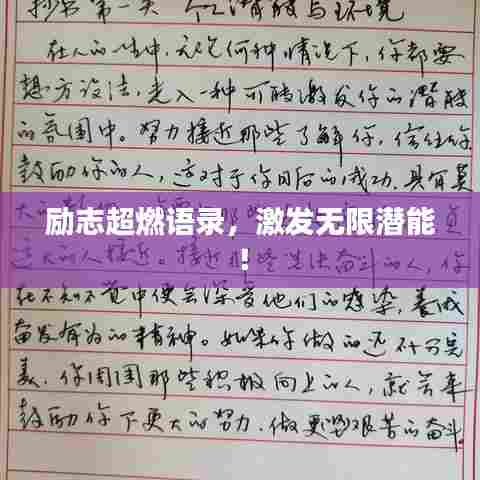 抄书第一天 潜能与环境
在人的一生中,无论何种情况下,你都要
想方设法,走入一种可能激发你的潜能
的氛围中。努力接近那些了解你,信任你
鼓励你的人,这对于你日后的成功,具有莫
大的
励志超燃语录，激发无限潜能
！
大的人接近。接近那些坚决奋斗的人,你
在不知不觉中便会深受他们的感染,养成
奋发有为的精神。如果你做的还不十分完
美,你周围那些积极向上的人,就会来
鼓励你下更大的努力,做更艰苦的奋斗.